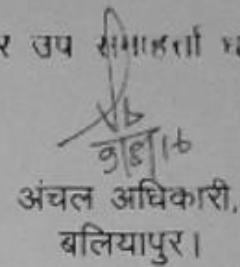 र उप समाहर्ता ध
अंचल अधिकारी,
बलियापुर।